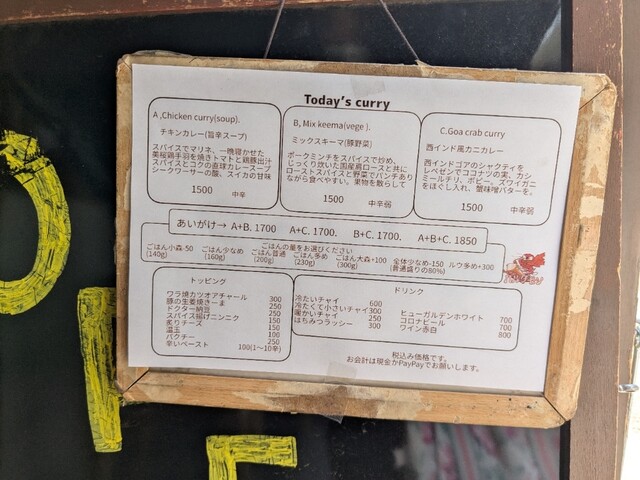 Today's curry
A ,Chicken curry(soup).
チキンカレー(旨辛スープ)
スパイスでマリネ、一晩寝かせた
美桜鶏手羽を焼きトマトと鶏豚出汁
スパイスとコクの直球カレースープ
シークワーサーの酸、スイカの甘味
1500 中辛
B, Mix keema(vege ).
ミックスキーマ(豚野菜)
ポークミンチをスパイスで炒め、
じっくり炊いた国産肩ロースと共に
ローストスパイスと野菜でパンチあり
ながら食べやすい。果物を散らして
1500 中辛弱
C.Goa crab curry
西インド風カニカレー
西インドゴアのシャクティを
レペゼンでココナツの実、カシ
ミールチリ、ポピー。ズワイガニ
をほぐし入れ、蟹味噌バターを。
1500 中辛弱
あいがけ→ A+B. 1700 A+C. 1700. B+C. 1700. A+B+C. 1850
ごはんの量をお選びください
ごはん小森-50 ごはん少なめ ごはん普通 ごはん多め ごはん大森+100 全体少なめ-150 ルウ多め+300
(140g) (160g) (200g) (230g) (300g) (普通盛りの80%)
トッピング
ワラ焼カツオアチャール 300
豚の生姜焼きーま 250
ドクター納豆 250
スパイス揚げニンニク 250
炙りチーズ 150
温玉 150
パクチー 100
辛いペースト 250
100(1〜10辛)
ドリンク
冷たいチャイ 600
冷たくて小さいチャイ 300
暖かいチャイ 250
はちみつラッシー 300
ヒューガルデンホワイト 700
コロナビール 700
ワイン赤白 800
税込み価格です。
お会計は現金かPayPayでお願いします。